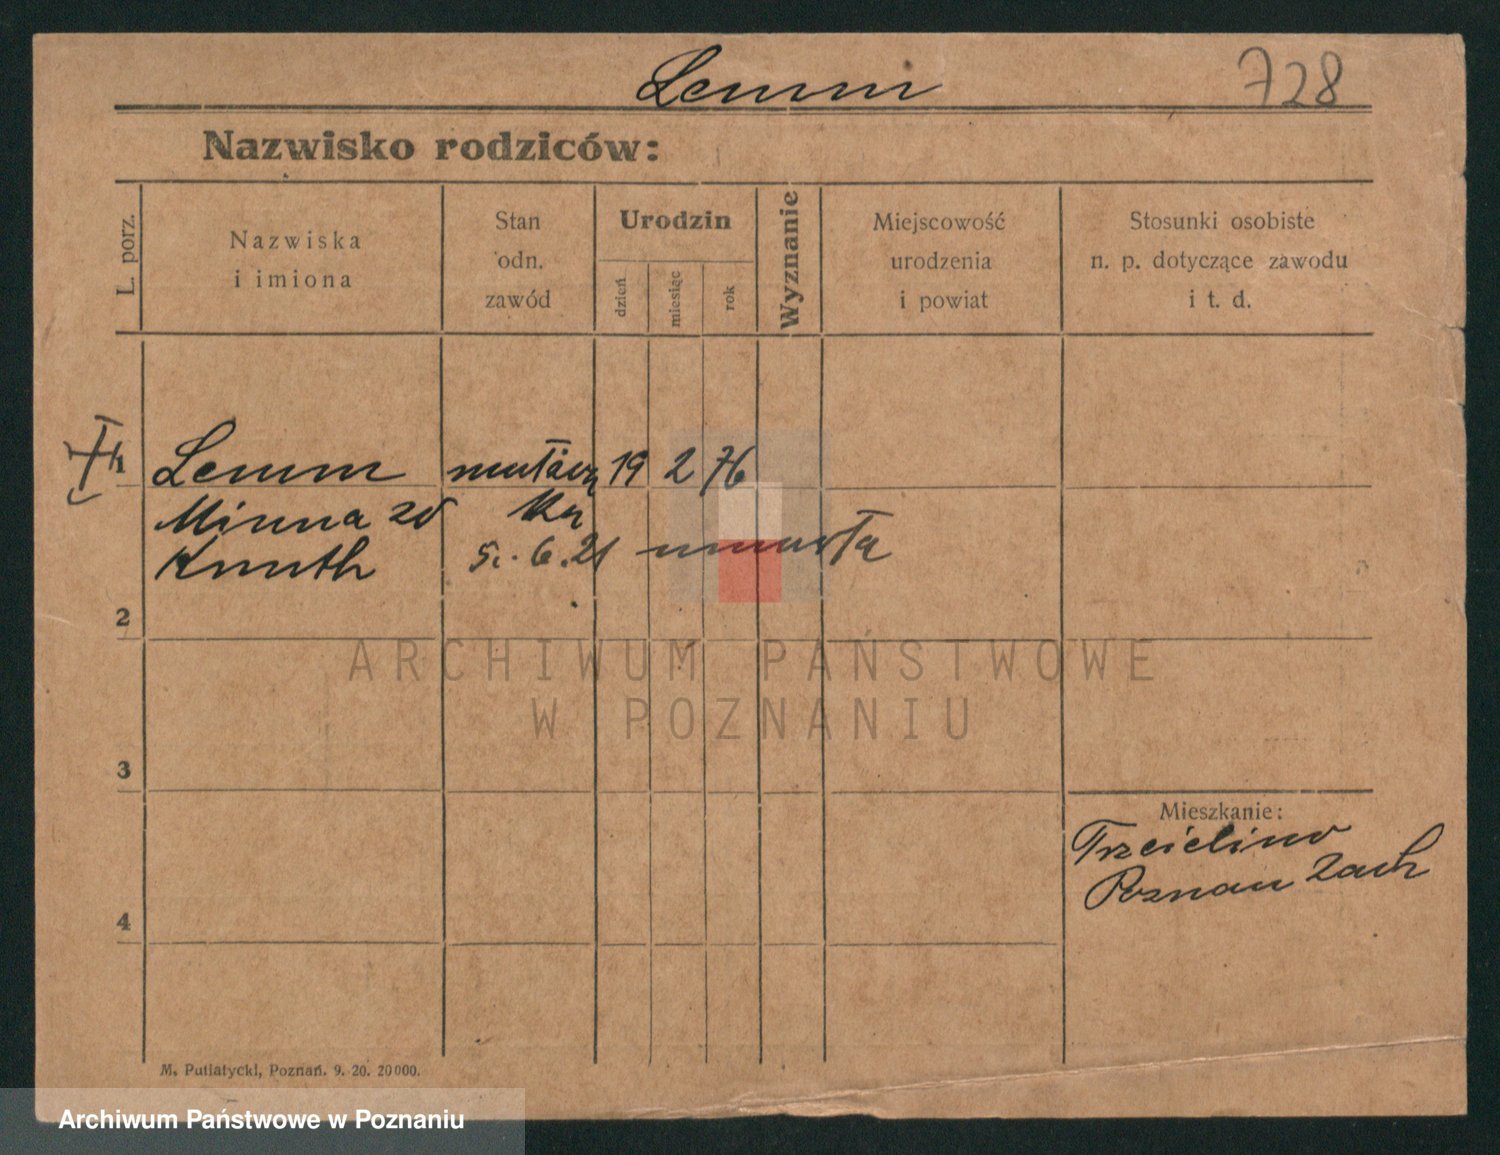 Lemm 728
Nazwisko rodziców:
L. porz.
Nazwiska
i imiona
Stan
odn.
zawód
Urodzin
dzień
miesiąc
rok
Wyznanie
Miejscowość
urodzenia
i powiat
Stosunki osobiste
n. p. dotyczące zawodu
i t. d.
1 Lemm 19 2 76
Minna zd ka
Knuth 5. 6. 21 umarła
2
3
4
ARCHIWUM PAŃSTWOWE
W POZNANIU
Mieszkanie:
Trzcielino
Poznan Zach
M. Putiatycki, Poznań. 9. 20. 20000.
Archiwum Państwowe w Poznaniu